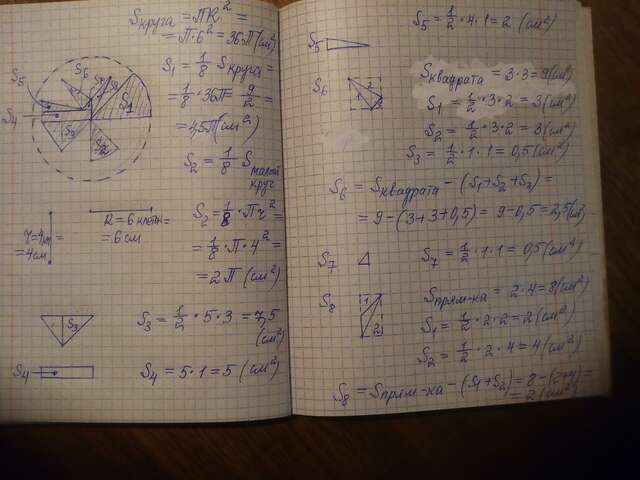 Sкруга = ПR² =
= П·6² = 36П(см²)
S₅
S₆
S₇
S₈
S₁
S₄
S₃
S₂
S₁ = 1/8 Sкруга =
= 1/8·36П = 9/2 =
= 4,5П(см²)
S₂ = 1/8 Sмалого круг
r=4кл =
= 4см
R = 6 клеток =
= 6 см
S₂ = 1/8·Пr² =
= 1/8·П·4² =
= 2П (см²)
S₃
S₃ = 1/2·5·3 = 7,5 (см²)
S₄
S₄ = 5·1 = 5 (см²)
S₅
S₅ = 1/2·4·1 = 2 (см²)
S₆
1
2
3
Sквадрата = 3·3 = 9(см²)
S₁ = 1/2·3·2 = 3(см²)
S₂ = 1/2·3·2 = 3(см²)
S₃ = 1/2·1·1 = 0,5(см²)
S₆ = Sквадрата - (S₁+S₂+S₃) =
= 9-(3+3+0,5) = 9-0,5 = 2,5(см²)
S₇
S₇ = 1/2·1·1 = 0,5(см²)
S₈
1
2
Sпрям-ка = 2·4 = 8(см²)
S₁ = 1/2·2·2 = 2(см²)
S₂ = 1/2·2·4 = 4(см²)
S₈ = Sпрям-ка - (S₁+S₂) = 8-(2+4) =
= 2(см²)